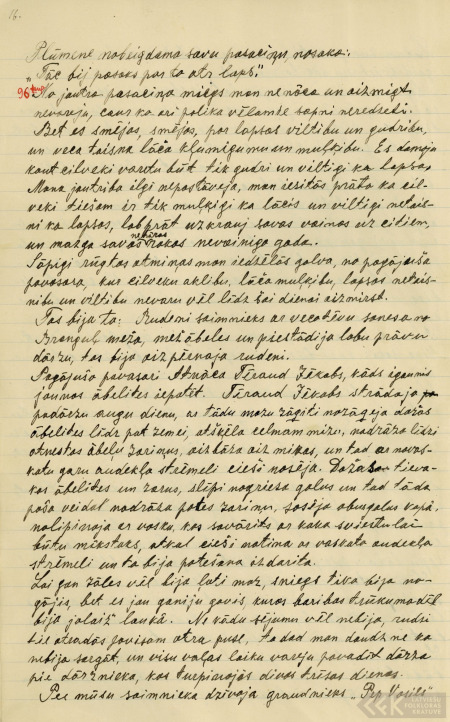 16.
Plūmene nobeigdama savu pasaciņu, nosaka:
"Tāc bij pasaks par to otr laps."
96 No jautra pasaciņa miegs man ne nāca un aizmigt
nevareju, caur ko ari polika vēlamie sapni neredzeti.
Bet es smējos, smējos, par lapsas viltibu un gudribu,
un veca taisna lāča klumigumu un mulķibu. Es domaju
kaut cilveki varetu būt tik gudri un viltigi ka lapsa.
Mana jautriba ilgi nepastāveja, man iesitās prāta ka cil-
veki tiešam ir tik mulķigi ka lācis un viltigi netais-
ni ka lapsas, labprāt uzkrauj savas vainas uz citiem,
un mazga savas netiras rokas nevainigo gada.
Sāpigi rūgtas atmiņas man iedzēlās galva, no pagājuša
pavasara, kur cilveku aklibu, lāča mulķibu, lapsas netais-
nibu un viltibu nevaru vēl lidz šai dienai aizmirst.
Tas bija ta: Rudeni saimnieks ar vecotēvu sanesa no
Branguļ meža, mežābeles un piestādija labu prāvu
dārzu, tas bija aizpērnaja rudeni.
Pagājušo pavasari Tēraud Jēkabs, kāds igaunis
jaunos ābelites iepotēt. Tēraud Jēkabs strādaja
padaezu augu dienu, ar tādu mazu zāģiti nozāģeja dažas
ābelites lidz pat zemei, atšķēla celmam mizu, nodrāza lidzi
atnestas ābelu zariņus, aizbāza aiz mizas, un tad ar
katu garu audekla strēmeli cieši nosēja. Dažas tieva-
kas ābelites un zarus, slipi nogrieza galus un tad tāda
paša veida nodrāza potes zariņu, sasēja abus galus kopā,
nolipinaja ar vasku, kas savārits ar kaka sviestu lai
būtu mikstaks, atkal cieši notina ar vaskota audekla
strēmeli un ta bija potešana izdarita.
Lai gan zāles vēl bija ļoti maz, sniegs tiko bija no-
gājis, bet es jau ganiju govis, kuras baribas trūkuma dēl
bija jalaiž laukā. No kādu sējumu vēl nebija, rudzi
bie otradās pavisam otra pusē, ta dad man daudz ne ka
nebija sargāt, un visu vaļas laiku vareju pavadit dārza
pie dārznieka, kas turpinajās divas trisas dienas.
Pie mūsu saimnieka dzivoja graudnieks, "Pep Vasils"